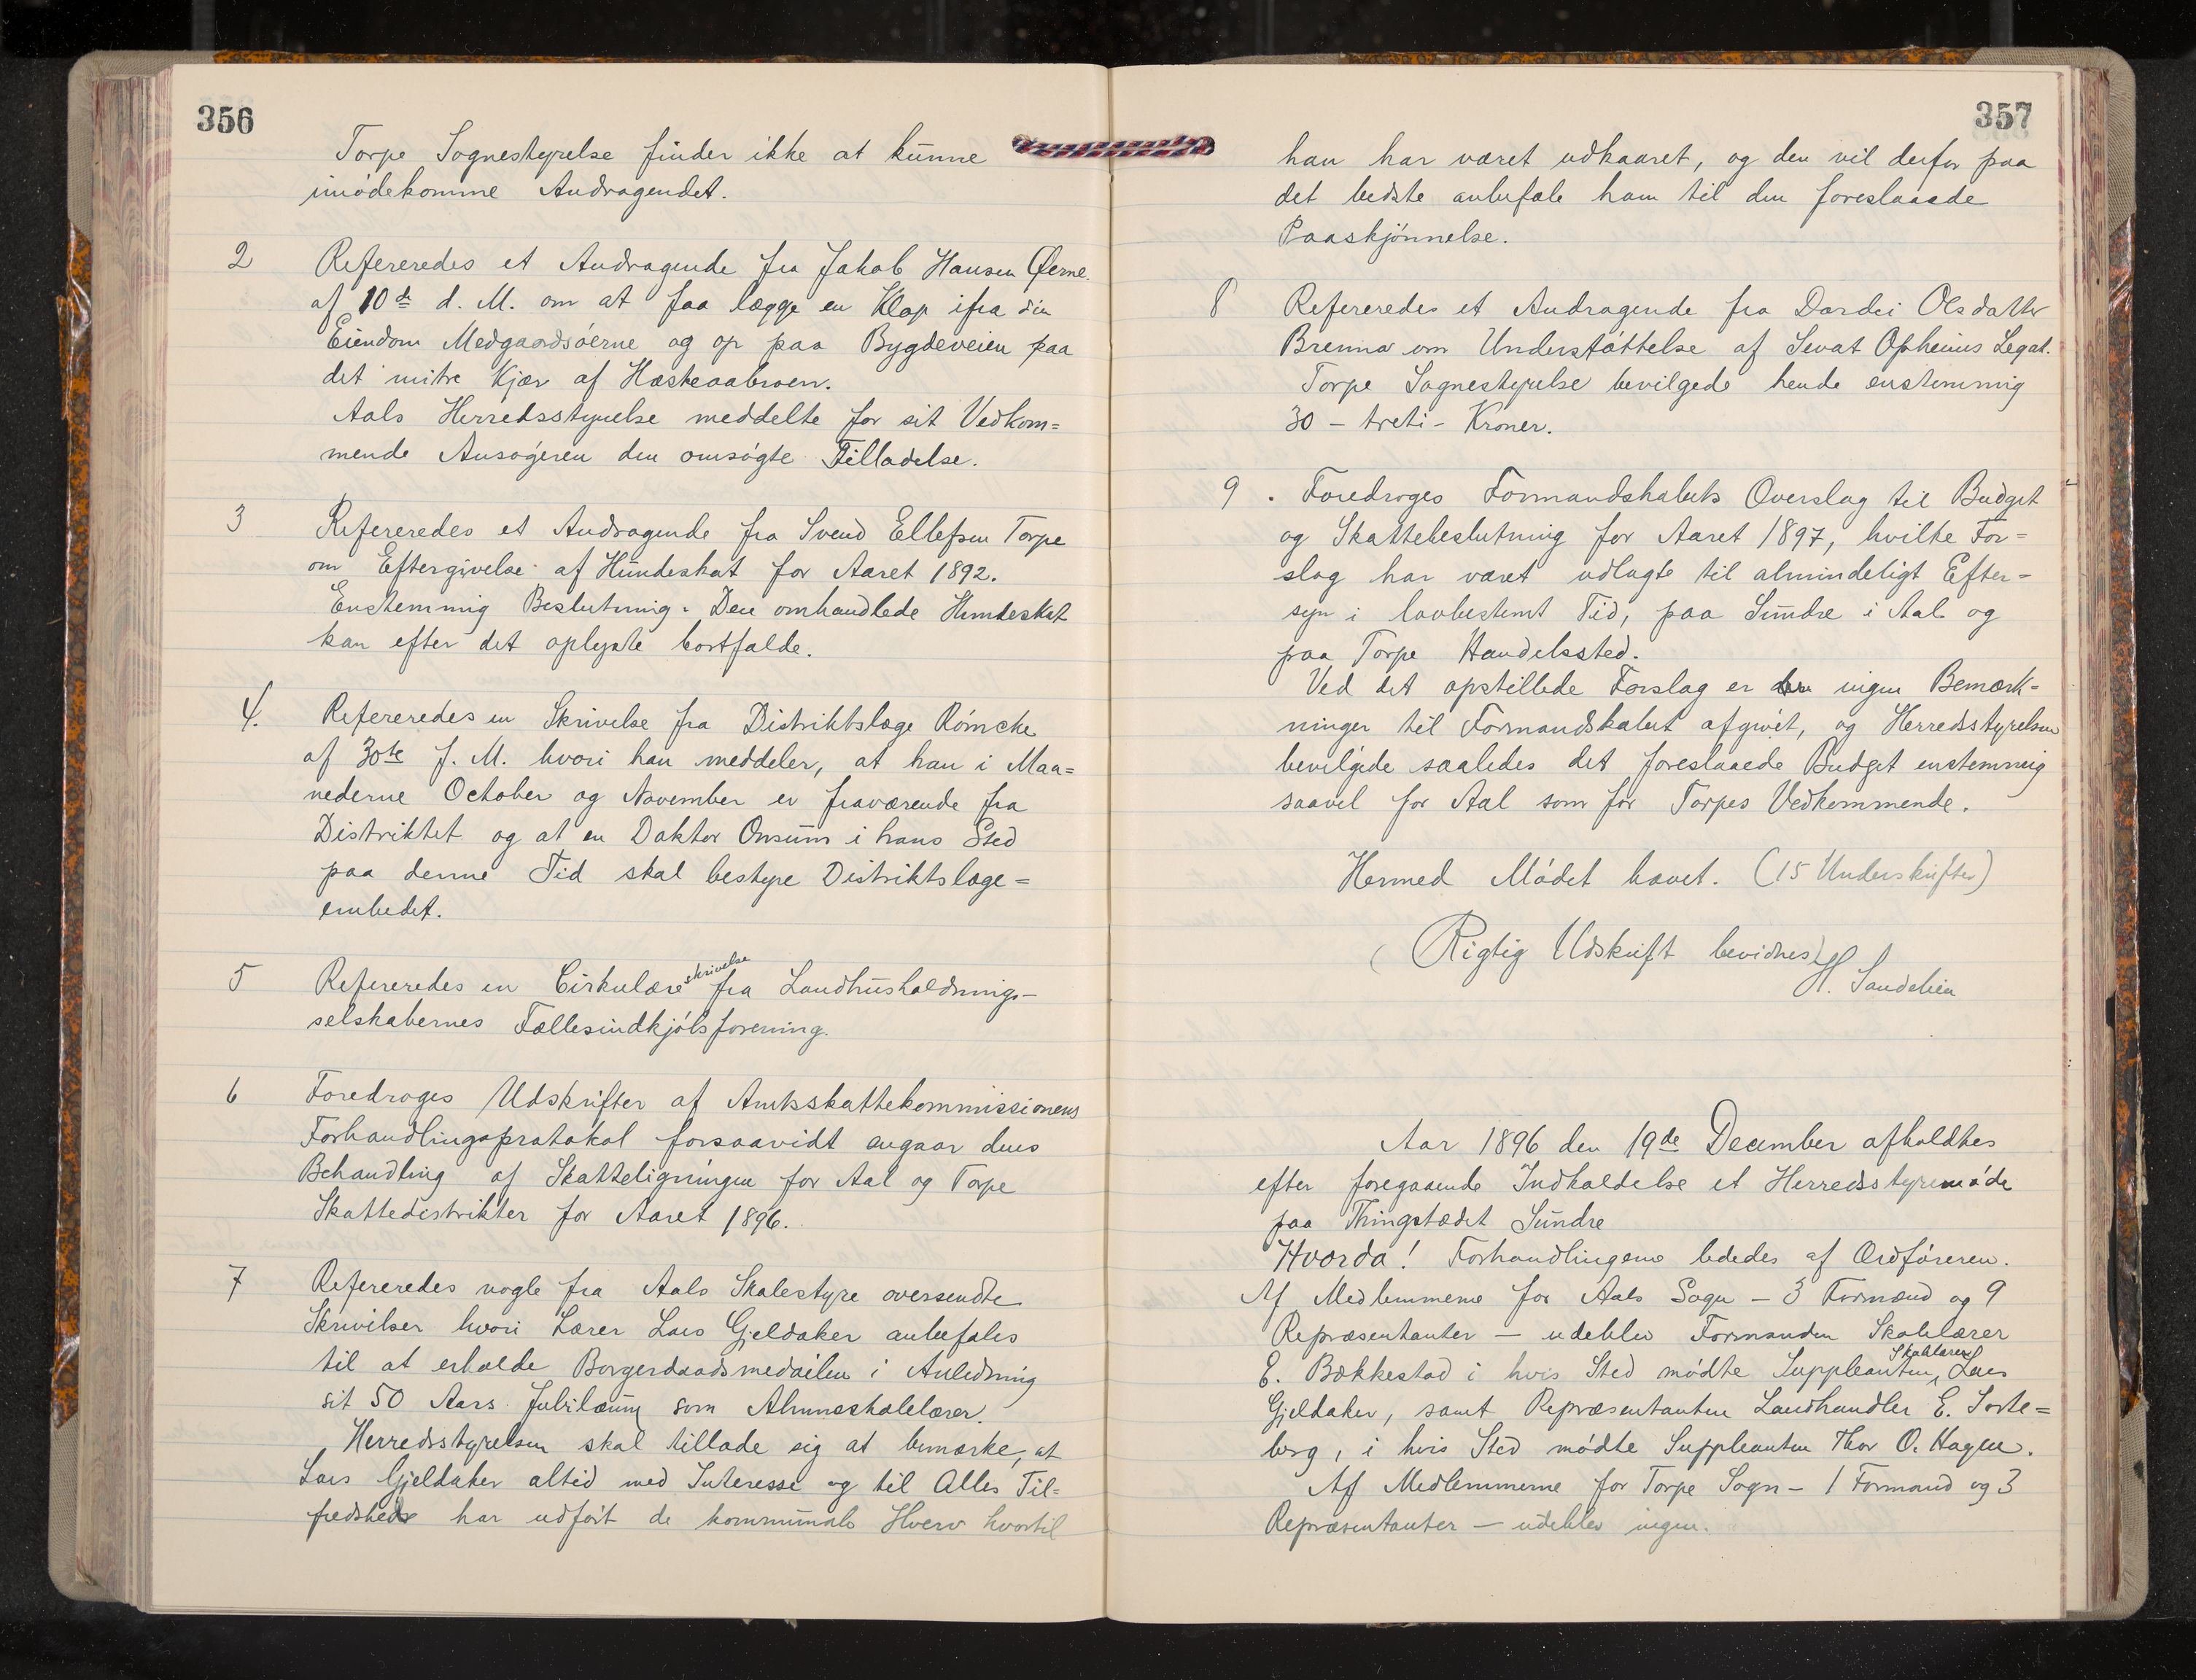 356
Torpe Sognestyrelse finder ikke at kunne
imødekomme Andragendet.
2 Refereredes et Andragende fra Jakob Hansen Øerne.
af 10de d. M. om at faa lægge en Klop ifra sin
Eiendom Medgaardsøerne og op paa Bygdeveien paa
det mitre Kjær af Hæsteaabroen.
Aals Herredsstyrelse meddelte for sit Vedkom=
mende Ansøgeren den omsøgte Tilladelse.
3 Refereredes et Andragende fra Svend Ellefsen Torpe
om Eftergivelse af Hundeskat for Aaret 1892.
Enstemmig Beslutning: Den omhandlede Hundeskat
kan efter det oplyste bortfalde.
4. Refereredes en Skrivelse fra Distriktslæge Römcke
af 30te f. M. hvori han meddeler, at han i Maa=
nederne October og November er fraværende fra
Distriktet og at en Doktor Onsum i hans Sted
paa denne Tid skal bestyre Distriktslæge=
embedet.
5 Refereredes en Cirkulæreskrivelse fra Landhusholdnings-
selskabernes Fællesindkjøbsforening.
6 Foredroges Udskrifter af Amtsskattekommissionens
Forhandlingsprotokol forsaavidt angaar dens
Behandling af Skatteligningen for Aal og Torpe
Skattedistrikter for Aaret 1896.
7 Refereredes nogle fra Aals Skolestyre oversendte
Skrivelser hvori Lærer Lars Gjeldaker anbefales
til at erholde Borgerdaadsmedailen i Anledning
sit 50 Aars Jubilæum som Almueskolelærer.
Herredsstyrelsen skal tillade sig at bemærke, at
Lars Gjeldaker altid med Interesse og til Alles Til=
fredshed har udført de kommunale Hverv hvortil
357
han har været udkaaret, og den vil derfor paa
det bedste anbefale ham til den foreslaaede
Paaskjønnelse.
8 Refereredes et Andragende fra Dordei Olsdatter
Brenna om Understøttelse af Sevat Opheims Legat.
Torpe Sognestyrelse bevilgede hende enstemmig
30 - treti - Kroner.
9. Foredroges Formandskabets Overslag til Budget
og Skattebeslutning for Aaret 1897, hvilke For=
slag har været udlagte til almindeligt Efter=
syn i lovbestemt Tid, paa Sundre i Aal og
paa Torpe Handelssted.
Ved det opstillede Forslag er der ingen Bemærk=
ninger til Formandskabet afgivet, og Herredsstyrelsen
bevilgede saaledes det foreslaaede Budget enstemmig
saavel for Aal som for Torpes Vedkommende.
Hermed Mødet hævet. (15 Underskrifter)
(Rigtig Udskrift bevidnes) H. Sandelien
Aar 1896 den 19de December afholdtes
efter foregaaende Indkaldelse et Herredsstyremøde
paa Thingstedet Sundre
Hvorda! Forhandlingene lededes af Ordføreren.
Af Medlemmerne for Aals Sogn - 3 Formænd og 9
Repræsentanter - udeblev Formanden Skolelærer
E. Bækkestad i hvis Sted mødte Suppleanten, Skolelærer Lars
Gjeldaker, samt Repræsentanten Landhandler E. Sorte=
berg, i hvis Sted mødte Suppleanten Thor O. Hagen.
Af Medlemmerne for Torpe Sogn - 1 Formand og 3
Repræsentanter - udeblev ingen.